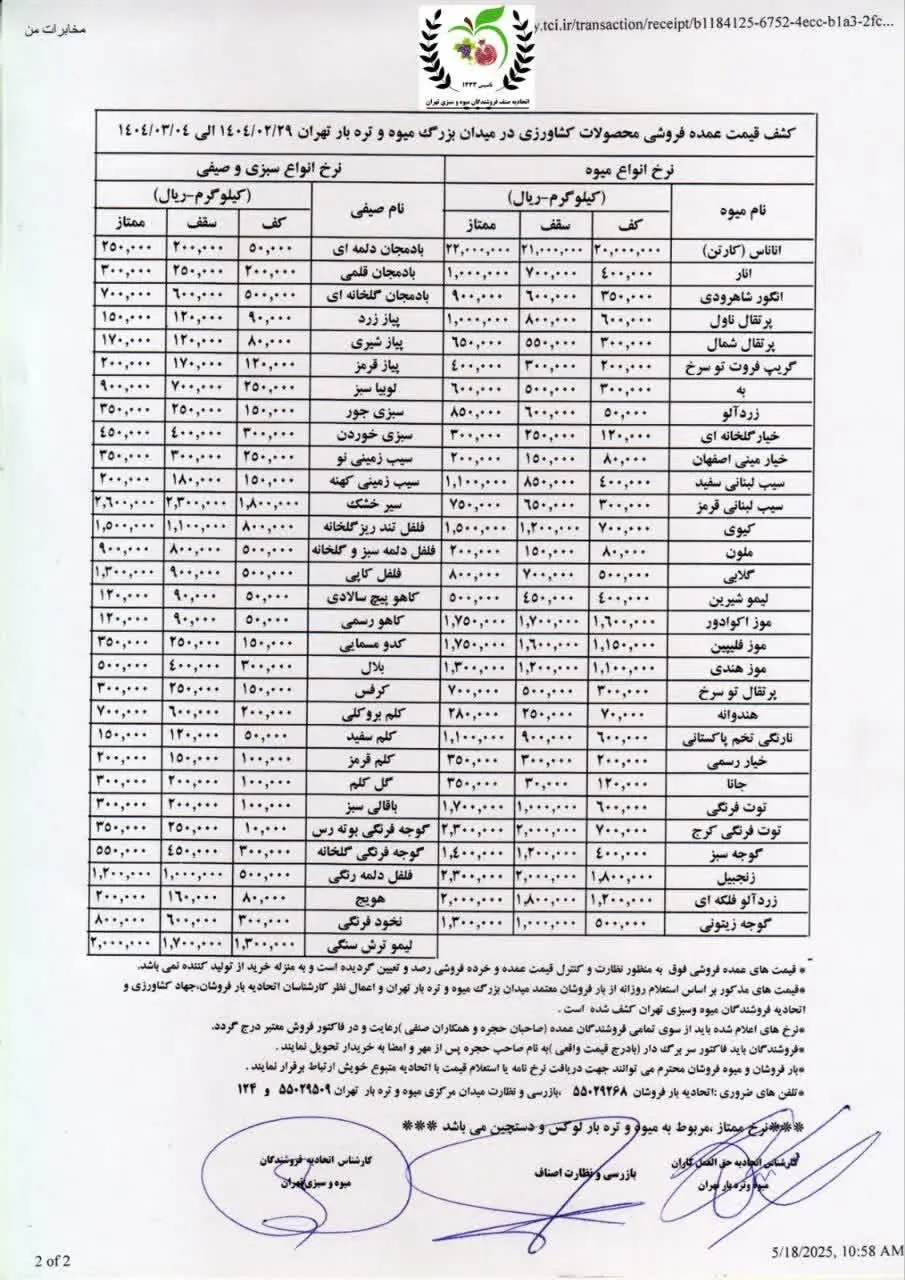 مخابرات من
y.tci.ir/transaction/receipt/b1184125-6752-4ecc-b1a3-2fc...
تاسیس ۱۳۳۳
اتحادیه صنف فروشندگان میوه و سبزی تهران
کشف قیمت عمده فروشی محصولات کشاورزی در میدان بزرگ میوه و تره بار تهران ۱۴۰۴/۰۲/۲۹ الی ۱۴۰۴/۰۳/۰۴
نرخ انواع میوه نرخ انواع سبزی و صیفی
نام میوه (کیلوگرم-ریال) نام صیفی (کیلوگرم-ریال)
کف سقف ممتاز کف سقف ممتاز
اناناس (کارتن) ۲۰,۰۰۰,۰۰۰ ۲۱,۰۰۰,۰۰۰ ۲۲,۰۰۰,۰۰۰ بادمجان دلمه ای ۵۰,۰۰۰ ۲۰۰,۰۰۰ ۲۵۰,۰۰۰
انار ۴۰۰,۰۰۰ ۷۰۰,۰۰۰ ۱,۰۰۰,۰۰۰ بادمجان قلمی ۲۰۰,۰۰۰ ۲۵۰,۰۰۰ ۳۰۰,۰۰۰
انگور شاهرودی ۳۵۰,۰۰۰ ۶۰۰,۰۰۰ ۹۰۰,۰۰۰ بادمجان گلخانه ای ۵۰۰,۰۰۰ ۶۰۰,۰۰۰ ۷۰۰,۰۰۰
پرتقال ناول ۶۰۰,۰۰۰ ۸۰۰,۰۰۰ ۱,۰۰۰,۰۰۰ پیاز زرد ۹۰,۰۰۰ ۱۲۰,۰۰۰ ۱۵۰,۰۰۰
پرتقال شمال ۳۰۰,۰۰۰ ۵۵۰,۰۰۰ ۶۵۰,۰۰۰ پیاز شیری ۸۰,۰۰۰ ۱۲۰,۰۰۰ ۱۷۰,۰۰۰
گریپ فروت تو سرخ ۲۰۰,۰۰۰ ۳۰۰,۰۰۰ ۴۰۰,۰۰۰ پیاز قرمز ۱۲۰,۰۰۰ ۱۷۰,۰۰۰ ۲۰۰,۰۰۰
به ۳۰۰,۰۰۰ ۵۰۰,۰۰۰ ۶۰۰,۰۰۰ لوبیا سبز ۲۵۰,۰۰۰ ۷۰۰,۰۰۰ ۹۰۰,۰۰۰
زردآلو ۵۰,۰۰۰ ۶۰۰,۰۰۰ ۸۵۰,۰۰۰ سبزی جور ۱۵۰,۰۰۰ ۲۵۰,۰۰۰ ۳۵۰,۰۰۰
خیارگلخانه ای ۱۲۰,۰۰۰ ۲۵۰,۰۰۰ ۳۰۰,۰۰۰ سبزی خوردن ۳۰۰,۰۰۰ ۴۰۰,۰۰۰ ۴۵۰,۰۰۰
خیار مینی اصفهان ۸۰,۰۰۰ ۱۵۰,۰۰۰ ۲۰۰,۰۰۰ سیب زمینی نو ۲۵۰,۰۰۰ ۳۰۰,۰۰۰ ۳۵۰,۰۰۰
سیب لبنانی سفید ۴۰۰,۰۰۰ ۸۵۰,۰۰۰ ۱,۱۰۰,۰۰۰ سیب زمینی کهنه ۱۵۰,۰۰۰ ۱۸۰,۰۰۰ ۲۰۰,۰۰۰
سیب لبنانی قرمز ۳۰۰,۰۰۰ ۶۵۰,۰۰۰ ۷۵۰,۰۰۰ سیر خشک ۱,۸۰۰,۰۰۰ ۲,۳۰۰,۰۰۰ ۲,۶۰۰,۰۰۰
کیوی ۷۰۰,۰۰۰ ۱,۲۰۰,۰۰۰ ۱,۵۰۰,۰۰۰ فلفل تند ریز گلخانه ۸۰۰,۰۰۰ ۱,۱۰۰,۰۰۰ ۱,۵۰۰,۰۰۰
ملون ۸۰,۰۰۰ ۱۵۰,۰۰۰ ۲۰۰,۰۰۰ فلفل دلمه سبز و گلخانه ۵۰۰,۰۰۰ ۸۰۰,۰۰۰ ۹۰۰,۰۰۰
گلابی ۵۰۰,۰۰۰ ۷۰۰,۰۰۰ ۸۰۰,۰۰۰ فلفل کاپی ۵۰۰,۰۰۰ ۹۰۰,۰۰۰ ۱,۳۰۰,۰۰۰
لیمو شیرین ۴۰۰,۰۰۰ ۴۵۰,۰۰۰ ۵۰۰,۰۰۰ کاهو پیچ سالادی ۵۰,۰۰۰ ۹۰,۰۰۰ ۱۲۰,۰۰۰
موز اکوادور ۱,۶۰۰,۰۰۰ ۱,۷۰۰,۰۰۰ ۱,۷۵۰,۰۰۰ کاهو رسمی ۵۰,۰۰۰ ۹۰,۰۰۰ ۱۲۰,۰۰۰
موز فلیپین ۱,۱۵۰,۰۰۰ ۱,۶۰۰,۰۰۰ ۱,۷۵۰,۰۰۰ کدو مسمایی ۱۵۰,۰۰۰ ۲۵۰,۰۰۰ ۳۵۰,۰۰۰
موز هندی ۱,۱۰۰,۰۰۰ ۱,۲۰۰,۰۰۰ ۱,۳۰۰,۰۰۰ بلال ۳۰۰,۰۰۰ ۴۰۰,۰۰۰ ۵۰۰,۰۰۰
پرتقال تو سرخ ۳۰۰,۰۰۰ ۵۰۰,۰۰۰ ۷۰۰,۰۰۰ کرفس ۱۵۰,۰۰۰ ۲۵۰,۰۰۰ ۳۰۰,۰۰۰
هندوانه ۷۰,۰۰۰ ۲۵۰,۰۰۰ ۲۸۰,۰۰۰ کلم بروکلی ۲۰۰,۰۰۰ ۶۰۰,۰۰۰ ۷۰۰,۰۰۰
نارنگی تخم پاکستانی ۶۰۰,۰۰۰ ۹۰۰,۰۰۰ ۱,۱۰۰,۰۰۰ کلم سفید ۵۰,۰۰۰ ۱۲۰,۰۰۰ ۱۵۰,۰۰۰
خیار رسمی ۲۰۰,۰۰۰ ۳۰۰,۰۰۰ ۳۵۰,۰۰۰ کلم قرمز ۱۰۰,۰۰۰ ۱۵۰,۰۰۰ ۲۰۰,۰۰۰
جانا ۱۲۰,۰۰۰ ۳۰,۰۰۰ ۳۵۰,۰۰۰ گل کلم ۱۰۰,۰۰۰ ۲۰۰,۰۰۰ ۳۰۰,۰۰۰
توت فرنگی ۶۰۰,۰۰۰ ۱,۰۰۰,۰۰۰ ۱,۷۰۰,۰۰۰ باقالی سبز ۱۰۰,۰۰۰ ۲۰۰,۰۰۰ ۳۰۰,۰۰۰
توت فرنگی کرج ۷۰۰,۰۰۰ ۲,۰۰۰,۰۰۰ ۲,۳۰۰,۰۰۰ گوجه فرنگی بوته رس ۱۰,۰۰۰ ۲۵۰,۰۰۰ ۳۵۰,۰۰۰
گوجه سبز ۴۰۰,۰۰۰ ۱,۲۰۰,۰۰۰ ۱,۴۰۰,۰۰۰ گوجه فرنگی گلخانه ۳۰۰,۰۰۰ ۴۵۰,۰۰۰ ۵۵۰,۰۰۰
زنجبیل ۱,۸۰۰,۰۰۰ ۲,۰۰۰,۰۰۰ ۲,۳۰۰,۰۰۰ فلفل دلمه رنگی ۵۰۰,۰۰۰ ۱,۰۰۰,۰۰۰ ۱,۲۰۰,۰۰۰
زردآلو فلکه ای ۱,۲۰۰,۰۰۰ ۱,۸۰۰,۰۰۰ ۲,۰۰۰,۰۰۰ هویج ۸۰,۰۰۰ ۱۶۰,۰۰۰ ۲۰۰,۰۰۰
گوجه زیتونی ۵۰۰,۰۰۰ ۱,۰۰۰,۰۰۰ ۱,۳۰۰,۰۰۰ نخود فرنگی ۳۰۰,۰۰۰ ۶۰۰,۰۰۰ ۸۰۰,۰۰۰
لیمو ترش سنگی ۱,۳۰۰,۰۰۰ ۱,۷۰۰,۰۰۰ ۲,۰۰۰,۰۰۰
* قیمت های عمده فروشی فوق به منظور نظارت و کنترل قیمت عمده و خرده فروشی رصد و تعیین گردیده است و به منزله خرید از تولید کننده نمی باشد.
*قیمت های مذکور بر اساس استعلام روزانه از بار فروشان معتمد میدان بزرگ میوه و تره بار تهران و اعمال نظر کارشناسان اتحادیه بار فروشان،جهاد کشاورزی و
اتحادیه فروشندگان میوه وسبزی تهران کشف شده است .
*نرخ های اعلام شده باید از سوی تمامی فروشندگان عمده (صاحبان حجره و همکاران صنفی )رعایت و در فاکتور فروش معتبر درج گردد.
*فروشندگان باید فاکتور سر برگ دار (بادرج قیمت واقعی )به نام صاحب حجره پس از مهر و امضا به خریدار تحویل نمایند .
*بار فروشان و میوه فروشان محترم می توانند جهت دریافت نرخ نامه یا استعلام قیمت با اتحادیه متبوع خویش ارتباط برقرار نمایند .
*تلفن های ضروری :اتحادیه بار فروشان ۵۵۰۲۹۲۶۸ ،بازرسی و نظارت میدان مرکزی میوه و تره بار تهران ۵۵۰۲۹۵۰۹ و ۱۲۴
***نرخ ممتاز ،مربوط به میوه و تره بار لوکس و دستچین می باشد ***
کارشناس اتحادیه حق العمل کاران بازرسی و نظارت اصناف کارشناس اتحادیه فروشندگان
میوه وتره بار تهران میوه و سبزی تهران
2 of 2
5/18/2025, 10:58 AM